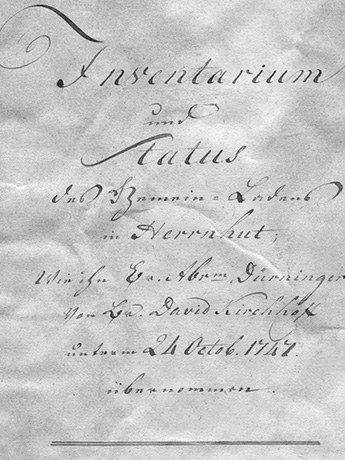 Inventarium
und
Status
des Gemein=Ladens
in Herrnhut,
Wie ihn Br. Abrm Dürninger
von Br. David Kirchhof
unterm 24 Octob. 1747.
übernommen.